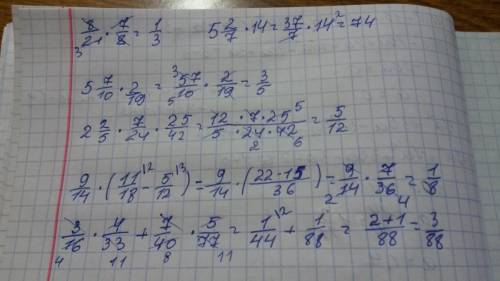 8/21 · 7/8 = 1/3   5 2/7 · 14 = 37/7 · 14 = 74
5 7/10 · 2/19 = 57/10 · 2/19 = 3/5
2 2/5 · 7/24 · 25/42 = 12 · 7 · 25 / 5 · 24 · 42 = 5/12
9/14 · (11/18 - 5/12) = 9/14 · (22 - 15 / 36) = 9/14 · 7/36 = 1/8
3/16 · 4/33 + 7/40 · 5/77 = 1/44 + 1/88 = 2+1/88 = 3/88